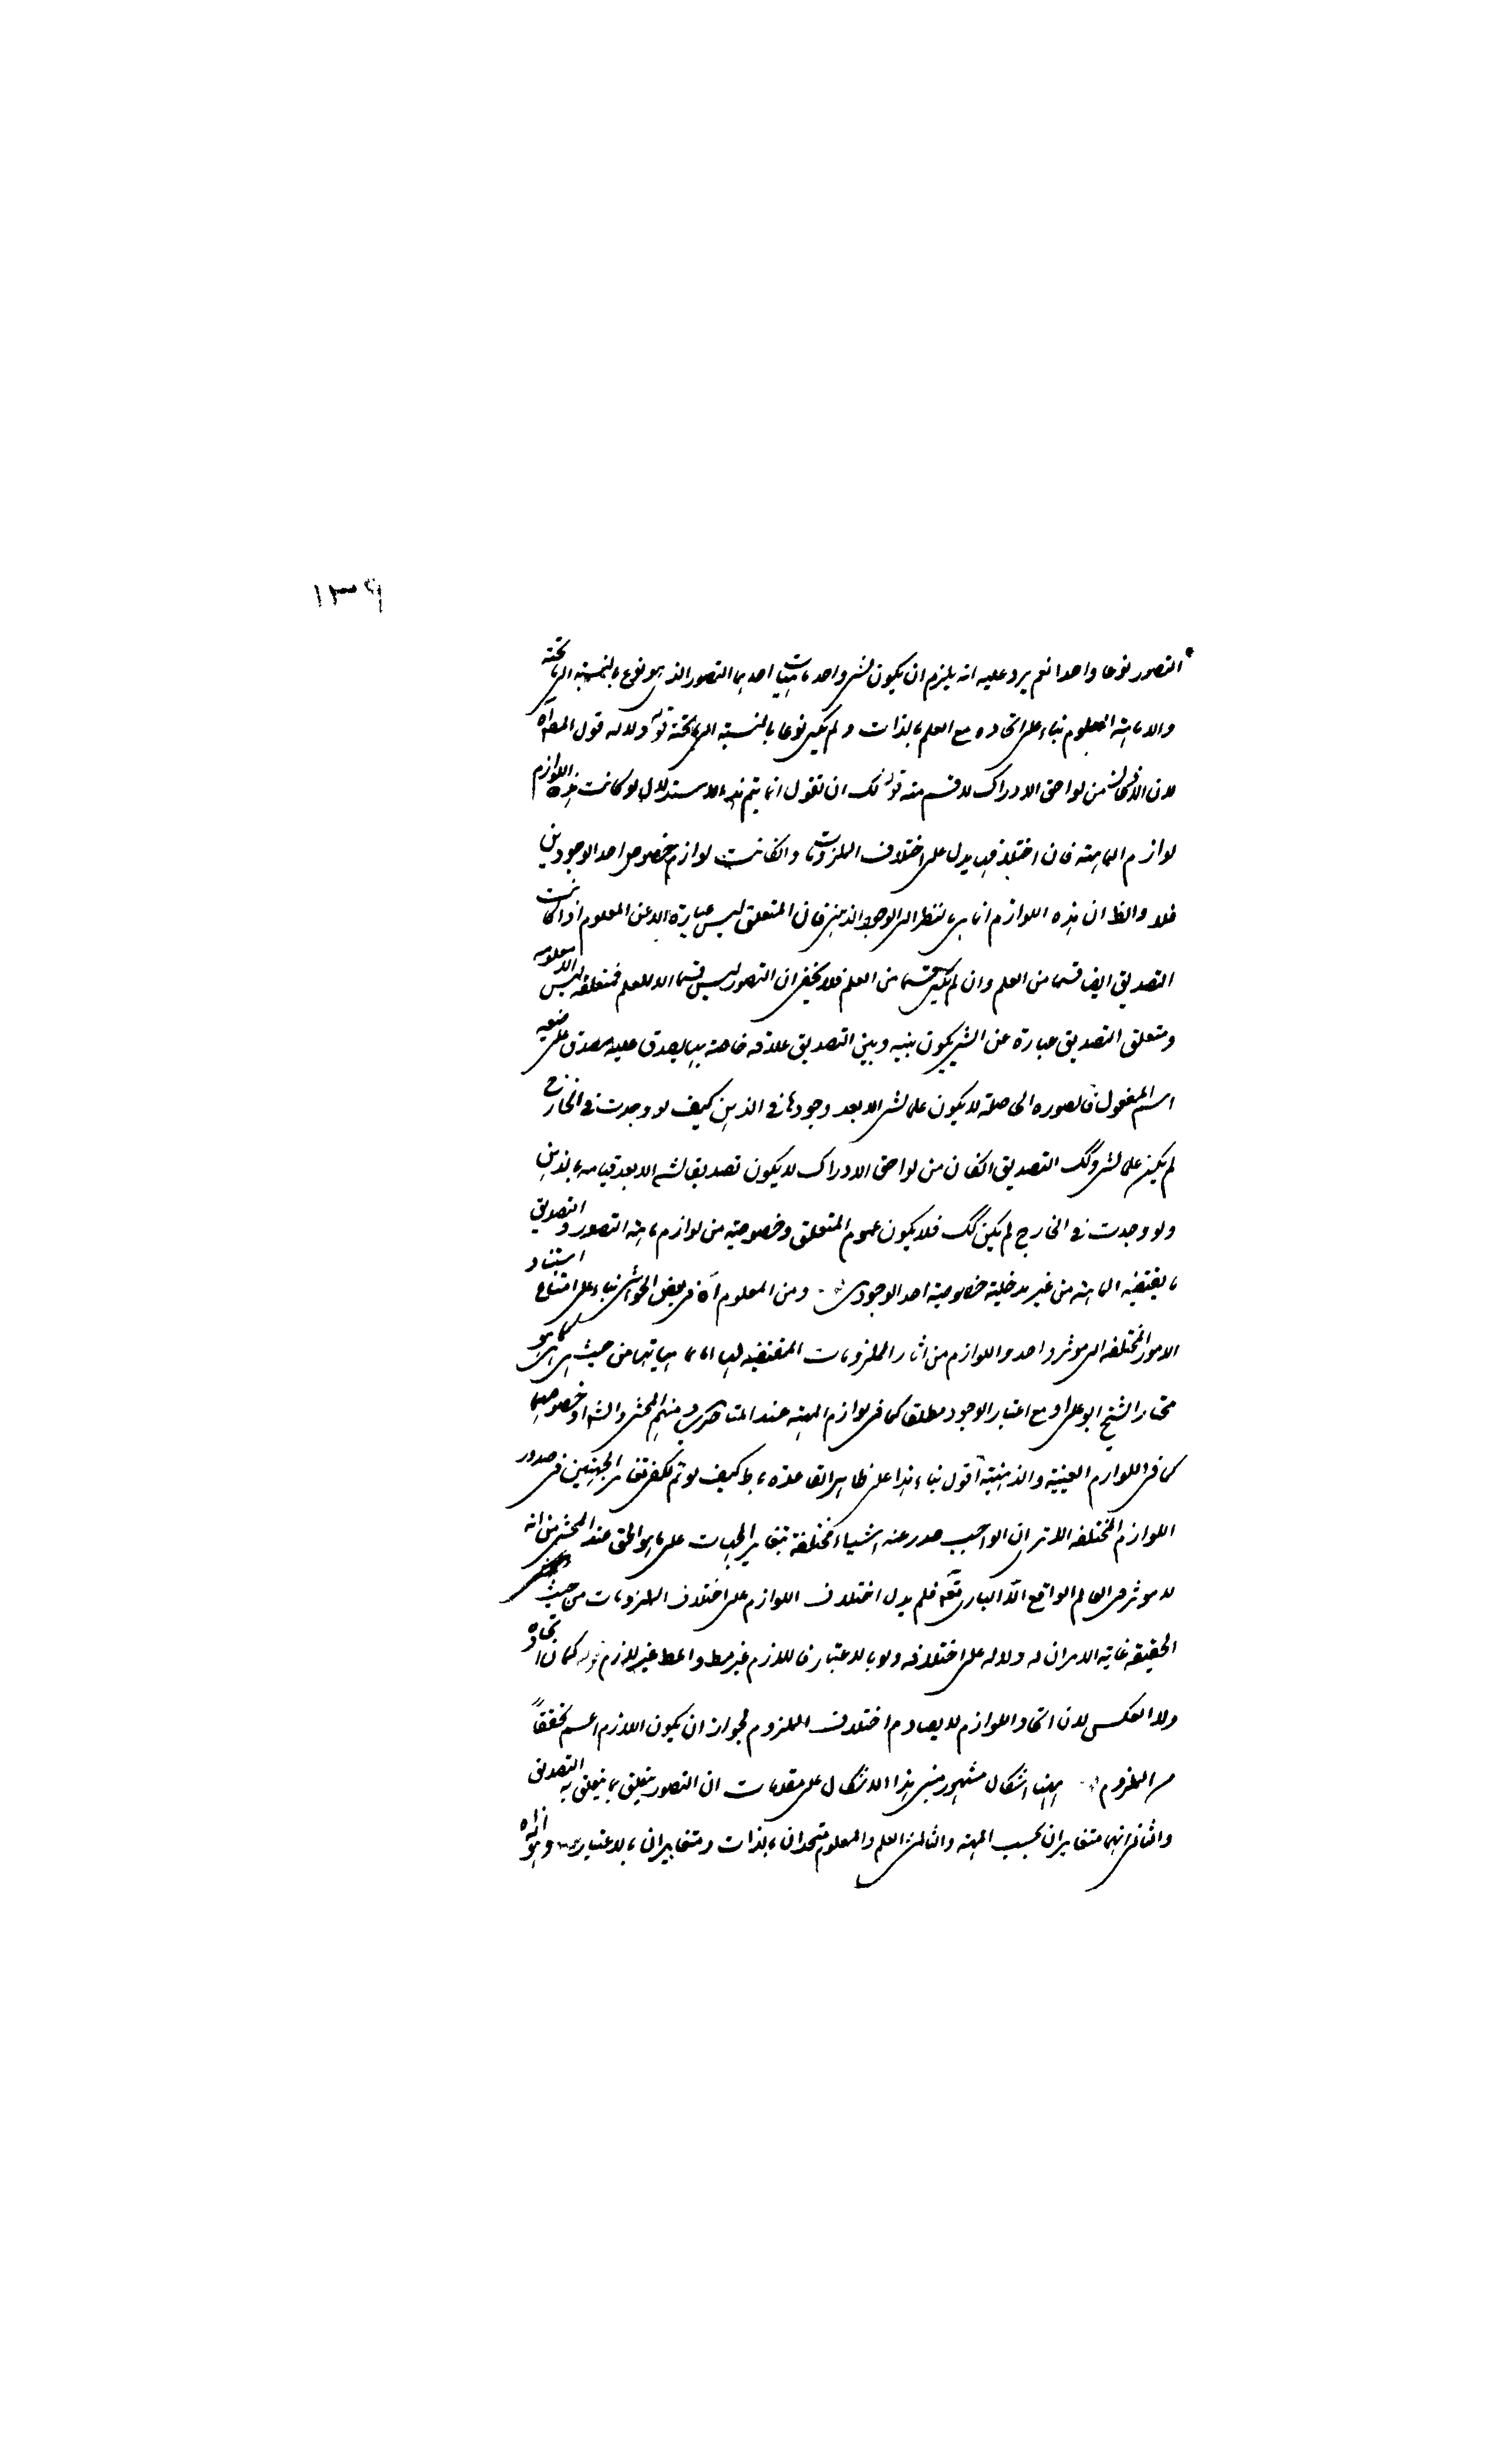 ١٣٩
التصور نوعا واحدا نعم يرد عليه انه يلزم ان يكون لشئ واحد ماهيتان احدهما التصور الذى هو نوع بالنسبة الى ما تحته
والا ماهية المعلوم بناء على اتحاده مع العلم بالذات ولم يكن نوعا بالنسبة الى ما تحته قوله ودلالة قول المصـ آه
لان الاذعان من لواحق الادراك لا قسم منه قوله لك ان تقول انما يتم هذا الاستدلال لو كانت هذه اللوازم
لوازم الماهية فان اختلافها يدل على اختلاف الملزومات وان كانت لوازم خصوص احد الوجودين
فلا والظ ان هذه اللوازم انما هى بالنظر الى الوجود الذهنى فان المتعلق ليس عبارة الا عن المعلوم اذا كانت
التصديق ايضا قسما من العلم وان لم يكن قسما من العلم فلا يخفى ان التصور ليس قسما الا للعلم فمتعلقه ليس الا معلومه
ومتعلق التصديق عبارة عن الشئ يكون بينه وبين التصديق علاقة خاصة بها يصدق عليه مصدق على صيغة
اسم المفعول فالصورة الحاصلة لا يكون علما لشئ الا بعد وجودها فى الذهن كيف لو وجدت فى الخارج
لم يكن علما لشئ وكك التصديق ان كان من لواحق الادراك لا يكون تصديقا لشئ الا بعد قيامه بالذهن
ولو وجدت فى الخارج لم يكن كك فلا يكون عموم المتعلق وخصوصيته من لوازم ماهية التصور والتصديق
ما يقتضيه الماهية من غير مدخلية خصوصية احد الوجودين ومن المعلوم آه فى بعض الحواشى بناء على امتناع استناد
الامور المختلفة الى مؤثر واحد واللوازم من اثار الملزومات المقتضية لها اما ماهياتها من حيث هى هى كما هو
مختار الشيخ ابو على او مع اعتبار الوجود مطلقا كما فى لوازم المهية عند المتاخرين منهم المحشى والشـ او خصوصهما
كما فى اللوازم العينية والذهنية اقول بناء هذا على ظاهر القاعدة كيف لو تم يكفى تغاير الجهتين فى صدور
اللوازم المختلفة الا ترى ان الواجب صدر عنه اشياء مختلفة بتغاير الجهات على ما هو الحق عند المحشى من انه
لا مؤثر فى العالم الواقع الا البارى تع فلم يدل اختلاف اللوازم على اختلاف الملزومات من حيث
الحقيقة غاية الامر ان له دلالة على اختلافه ولو بالاعتبار فاللازم غير مط والمط غير لازم قوله كما ان اتحاده
ولا العكس لان اتحاد اللوازم لا يصادم اختلاف الملزوم لجواز ان يكون اللازم اعم تحققا
من الملزوم ههنا اشكال مشهور مبنى هذا الاشكال على مقدمات ان التصور يتعلق بما يتعلق به التصديق
والثانى انهما متغايران بحسب المهية والثالث العلم والمعلوم متحدان بالذات ومتغايران بالاعتبار وهو انه